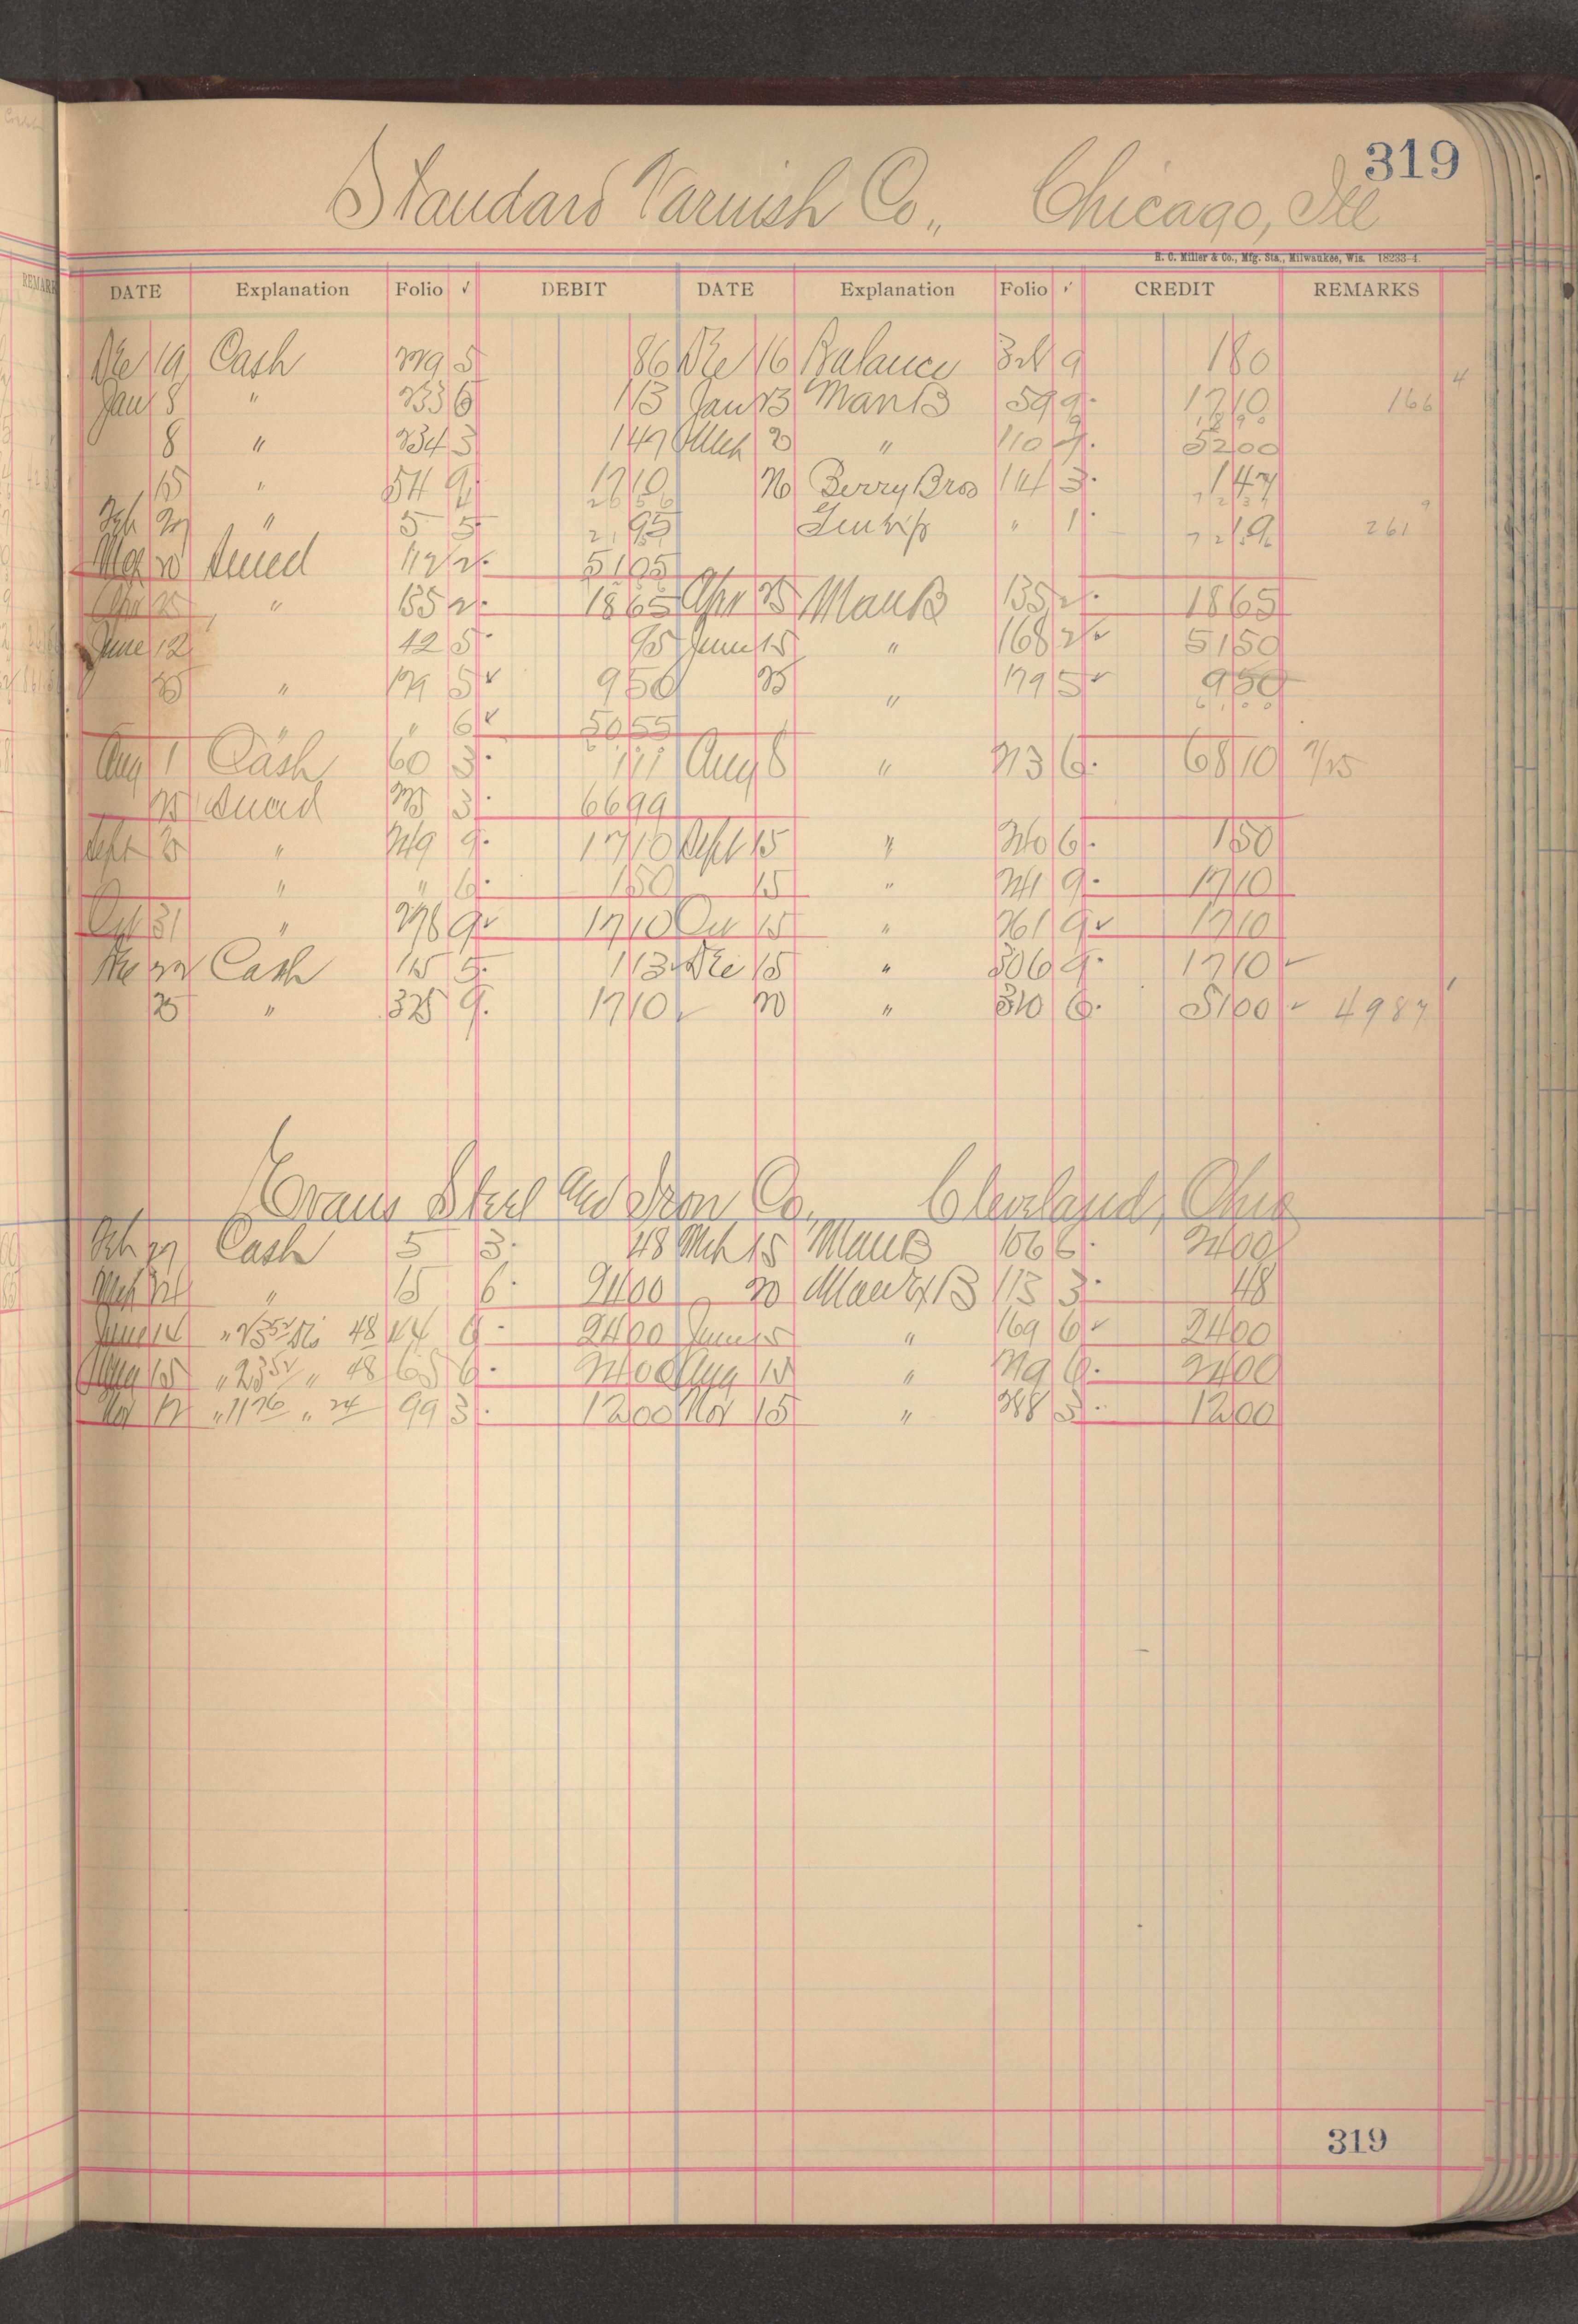 319
Standard Varnish Co., Chicago, Ill
H. C. Miller & Co., Mfg. Sta., Milwaukee, Wis. 18233-4.
DATE Explanation Folio ✓ DEBIT DATE Explanation Folio ✓ CREDIT REMARKS
Dec 19 Cash 229 5 86 Dec 16 Balance 9 180
Jan 8 " 233 5 113 Jan 23 Man B 59 9 1710 166 4
8 " 234 3 147 Mch 2 " 110 5200
15 " 54 9 1710 26 Berry Bros 114 3 147
Feb 27 " 5 5 95 " 1 19 261 9
20 Sured 112 2 5105
Apr 25 " 135 2 1865 Apr 25 Man B 135 2 1865
June 12 42 5 95 June 15 " 168 2 5150
25 " 179 5 950 25 " 179 5 950
" " 6 5055
Aug 1 Cash 60 3 111 Aug 8 " 213 6 6810 7/25
25 225 3 6699
Sept " 249 9 1710 Sept 15 " 240 6 150
" " 6 150 15 " 241 9 1710
Oct 31 " 276 9 1710 Oct 15 " 261 9 1710
Dec 22 Cash 115 5 113 Dec 15 " 306 9 1710
25 " 325 9 1710 20 " 310 6 5100 4987
Evans Steel and Iron Co., Cleveland, Ohio
Feb 27 Cash 5 3 48 Mch 15 Man B 106 6 2400
Mch 24 " 15 6 2400 20 Man Ex B 113 3 48
June 14 " 2352 Dis 48 44 6 2400 June 15 " 169 6 2400
Aug 15 " 2352 " 48 65 6 2400 Aug 15 " 219 6 2400
Nov 12 " 1176 " 24 99 3 1200 Nov 15 " 288 3 1200
319